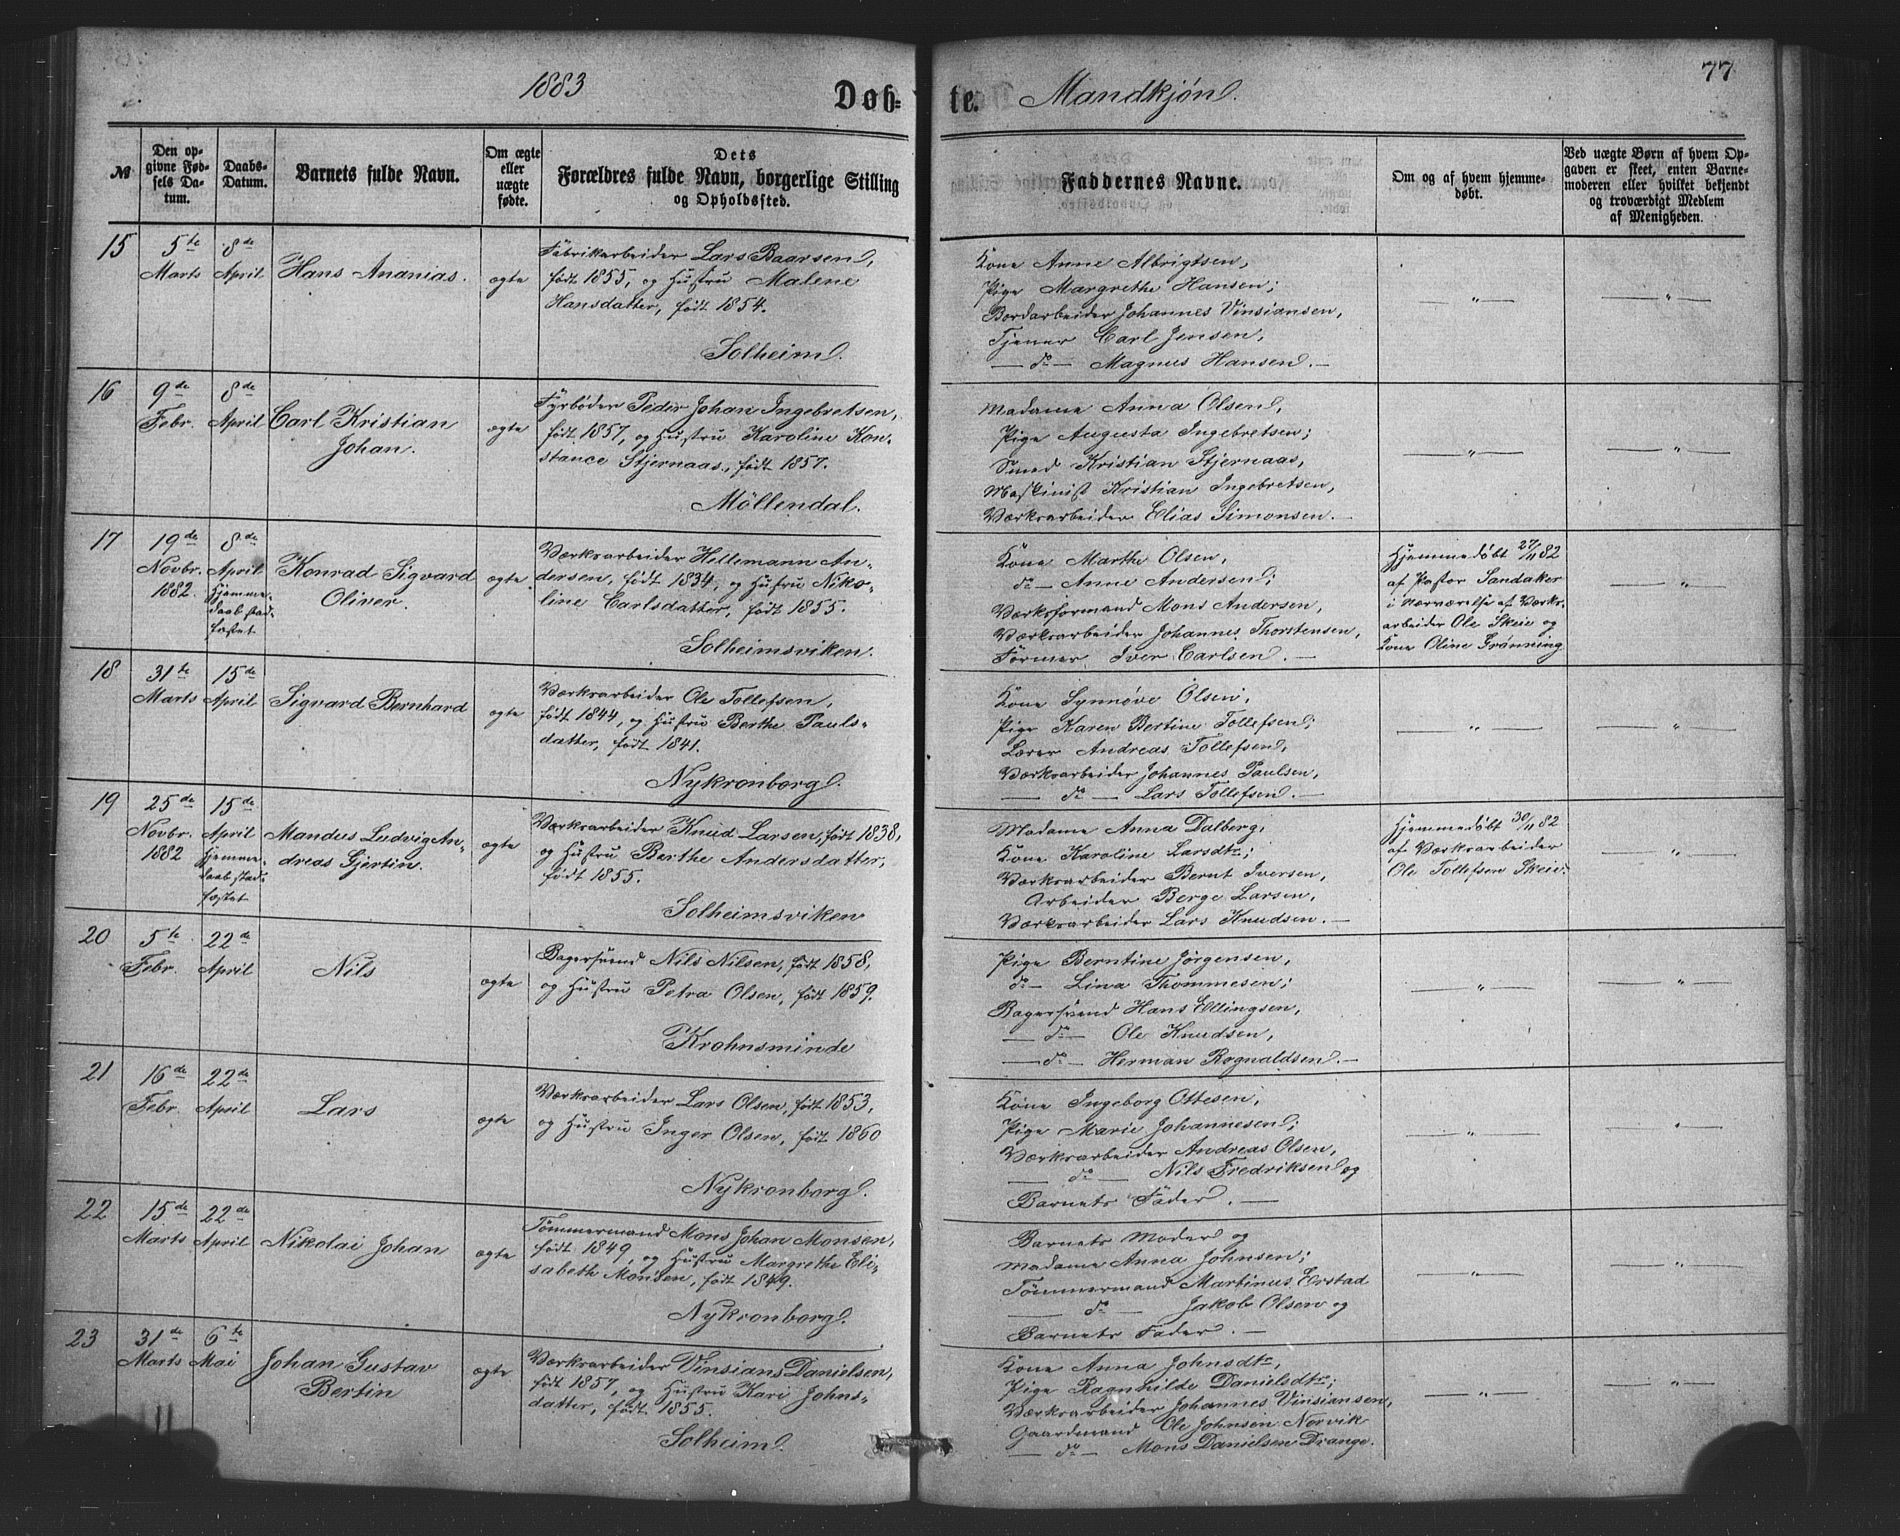 1883
Døb-
te.
Mandkjøn.
77
№
Den op-
givne Fød-
sels Da-
tum.
Daabs-
Datum.
Barnets fulde Navn.
Om ægte
eller
uægte
fødte.
Dets
Forældres fulde Navn, borgerlige Stilling
og Opholdssted.
Faddernes Navne.
Om og af hvem hjemme-
døbt.
Ved uægte Børn af hvem Op-
gaven er skeet, enten Barne-
moderen eller hvilket bekjendt
og troværdigt Medlem
af Menigheden.
15
5te
Marts
8de
April
Hans Ananias.
ægte
Fabrikarbeider Lars Baarsen,
født 1855, og Hustru Malene
Hansdatter, født 1854.
Solheim.
Kone Anne Albrigtsen,
Pige Margrethe Hansen;
Bordarbeider Johannes Vinsiansen,
Tjener Carl Jensen,
— do — Magnus Hansen. —
— „ —
— „ —
16
9de
Febr.
8de
April
Carl Kristian
Johan.
ægte
Fyrbøder Peder Johan Ingebretsen,
født 1857, og Hustru Karoline Kon-
stance Stjernaas, født 1857.
Möllendal.
Madame Anna Olsen,
Pige Augusta Ingebretsen;
Smed Kristian Stjernaas,
Maskinist Kristian Ingebretsen,
Værksarbeider Elias Simonsen. —
— „ —
— „ —
17
19de
Novbr.
1882.
8de
April
Hjemme-
daab stad-
fæstet
Konrad Sigvard
Oliver.
ægte
Værksarbeider Hillemann An-
dersen, født 1834, og Hustru Niko-
line Carlsdatter, født 1855.
Solheimsviken.
Kone Marthe Olsen,
do — Anne Andersen;
Værksformand Mons Andersen,
Værksarbeider Johannes Thorstensen,
Former Iver Carlsen. —
Hjemmedøbt 27/11 82
af Pastor Sandaker
i Nærværelse af Værks-
arbeider Ole Skeie og
Kone Oline Grønning
— „ —
18
31te
Marts
15de
April
Sigvard Bernhard
ægte
Værksarbeider Ole Tollefsen,
født 1844, og Hustru Berthe Pauls-
datter, født 1841.
Nykronborg.
Kone Synnøve Olsen;
Pige Karen Bertine Tollefsen;
Lærer Andreas Tollefsen,
Værksarbeider Johannes Paulsen,
— do — Lars Tollefsen. —
— „ —
— „ —
19
25de
Novbr.
1882
15de
April
Hjemme-
daab stad-
fæstet
Mandus Ludvig An-
dreas Gjertin.
ægte
Værksarbeider Knud Larsen, født 1838,
og Hustru Berthe Andersdatter,
født 1855.
Solheimsviken
Madame Anna Dalberg,
Kone Karoline Larsdtr;
Værksarbeider Bernt Iversen,
Arbeider Berge Larsen,
Værksarbeider Lars Knudsen. —
Hjemmedøbt 30/11 82
af Værksarbeider
Ole Tollefsen Skeie.
— „ —
20
5te
Febr.
22de
April
Nils
ægte
Bagersvend Nils Nilsen, født 1858,
og Hustru Petra Olsen, født 1859.
Krohnsminde
Pige Berntine Jørgensen,
do — Lina Thommesen;
Bagersvend Hans Ellingsen,
— do — Ole Knudsen,
— do — Herman Rognaldsen. —
— „ —
— „ —
21
16de
Febr.
22de
April
Lars
ægte
Værksarbeider Lars Olsen, født 1853,
og Hustru Inger Olsen, født 1860
Nykronborg.
Kone Ingeborg Ottesen,
Pige Marie Johannesen;
Værksarbeider Andreas Olsen,
— do — Nils Fredriksen og
Barnets Fader. —
— „ —
— „ —
22
15de
Marts
22de
April
Nikolai Johan
ægte
Tømmermand Mons Johan Monsen,
født 1849, og Hustru Margrethe Eli-
sabeth Monsen, født 1849.
Nykronborg.
Barnets Moder og
Madame Anna Johnsen;
Tømmermand Martinus Erstad
— do — Jakob Olsen og
Barnets Fader. —
— „ —
— „ —
23
31de
Marts
6te
Mai
Johan Gustav
Bertin
ægte
Værksarbeider Vinsians Danielsen,
født 1857, og Hustru Kari Johns-
datter, født 1855.
Solheim.
Kone Anna Johnsdtr,
Pige Ragnhilde Danielsdtr;
Værksarbeider Johannes Vinsiansen,
Gaardmand Ole Johnsen Norvik
— do — Mons Danielsen Drange.
— „ —
— „ —